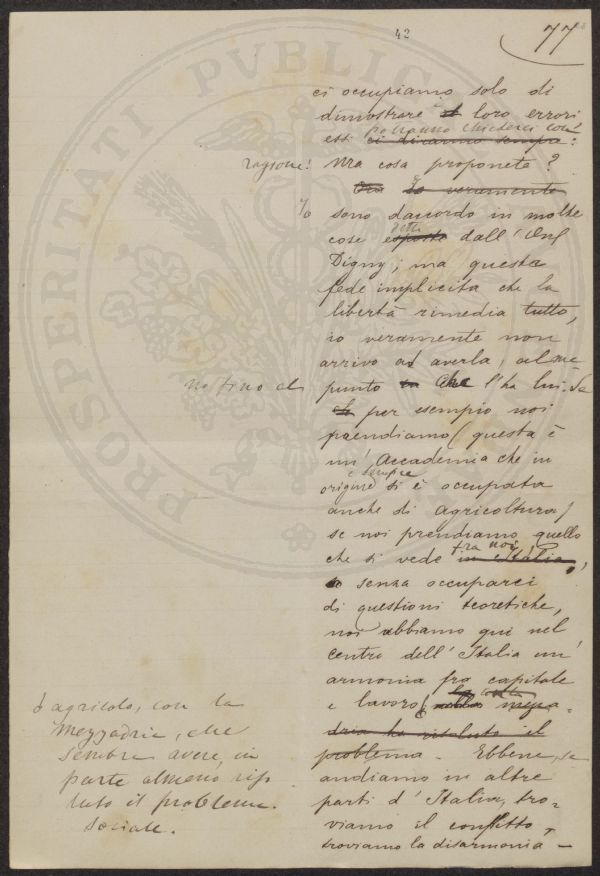 42
77
ci occupiamo solo di
dimostrare i loro errori
essi potranno chiederci con
ci diranno sempre:
ragione: Ma cosa proponete?
Ora Io veramente
Io sono daccordo in molte
cose esposte dette dall'On
Digny; ma questa
fede implicita che la
libertà rimedia tutto,
io veramente non
arrivo ad averla, al me-
no fino al punto che l'ha lui. Se
per esempio noi
prendiamo (questa è
un'Accademia che in
origine e sempre si è occupata
anche di agricoltura)
se noi prendiamo quello
che si vede tra noi in Italia,
senza occuparci
di questioni teoretiche,
noi abbiamo qui nel
centro dell'Italia un'
armonia fra capitale
e lavoro nella mezza-
dria ha risoluto il
problema. Ebbene, se
andiamo in altre
parti d'Italia, tro-
viamo il conflitto,
troviamo la disarmonia -
agricolo, con la
mezzadria, che
sembra avere, in
parte almeno riso-
luto il problema
sociale.
PROSPERITATI PUBLICAE